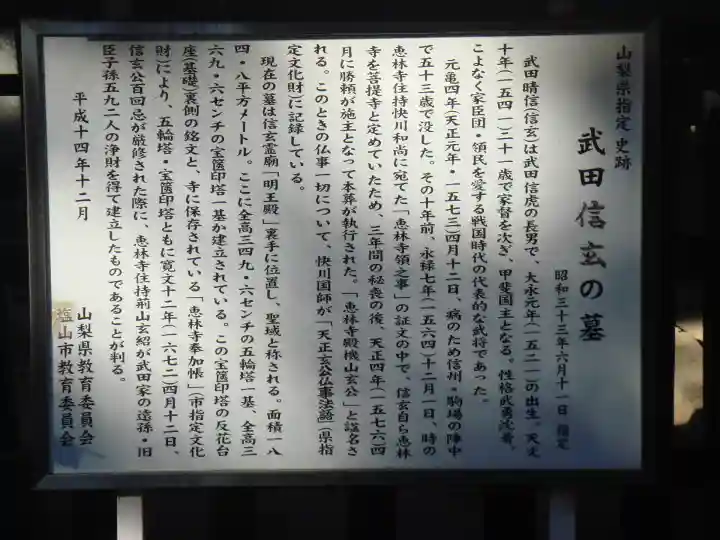 山梨県指定 史跡
武田信玄の墓
昭和三十三年六月十一日 指定
武田晴信(信玄)は武田信虎の長男で、大永元年(一五二一)の出生。天文
十年(一五四一)三十一歳で家督を次ぎ、甲斐国主となる。性格武勇沈着、
こよなく家臣団・領民を愛する戦国時代の代表的な武将であった。
元亀四年(天正元年・一五七三)四月十二日、病のため信州・駒場の陣中
で五十三歳で没した。その十年前、永禄七年(一五六四)十二月一日、時の
恵林寺住持快川和尚に宛てた「恵林寺領之事」の証文の中で、信玄自ら恵林
寺を菩提寺と定めていたため、三年間の秘喪の後、天正四年(一五七六)四
月に勝頼が施主となって本葬が執行された。「恵林寺殿機山玄公」と諡名さ
れる。このときの仏事一切について、快川国師が「天正玄公仏事法語」(県指
定文化財)に記録している。
現在の墓は信玄霊廟「明王殿」裏手に位置し、聖域と称される。面積一八
四・八平方メートル。ここに全高三四九・六センチの五輪塔一基、全高三
六九・六センチの宝篋印塔一基か建立されている。この宝篋印塔の反花台
座(基礎)裏側の銘文と、寺に保存されている「恵林寺奉加帳」(市指定文化
財)により、五輪塔・宝篋印塔ともに寛文十二年(一六七二)四月十二日、
信玄公百回忌が厳修された際に、恵林寺住持前山玄紹が武田家の遠孫・旧
臣子孫五九二人の浄財を得て建立したものであることが判る。
平成十四年十二月
山梨県教育委員会
塩山市教育委員会